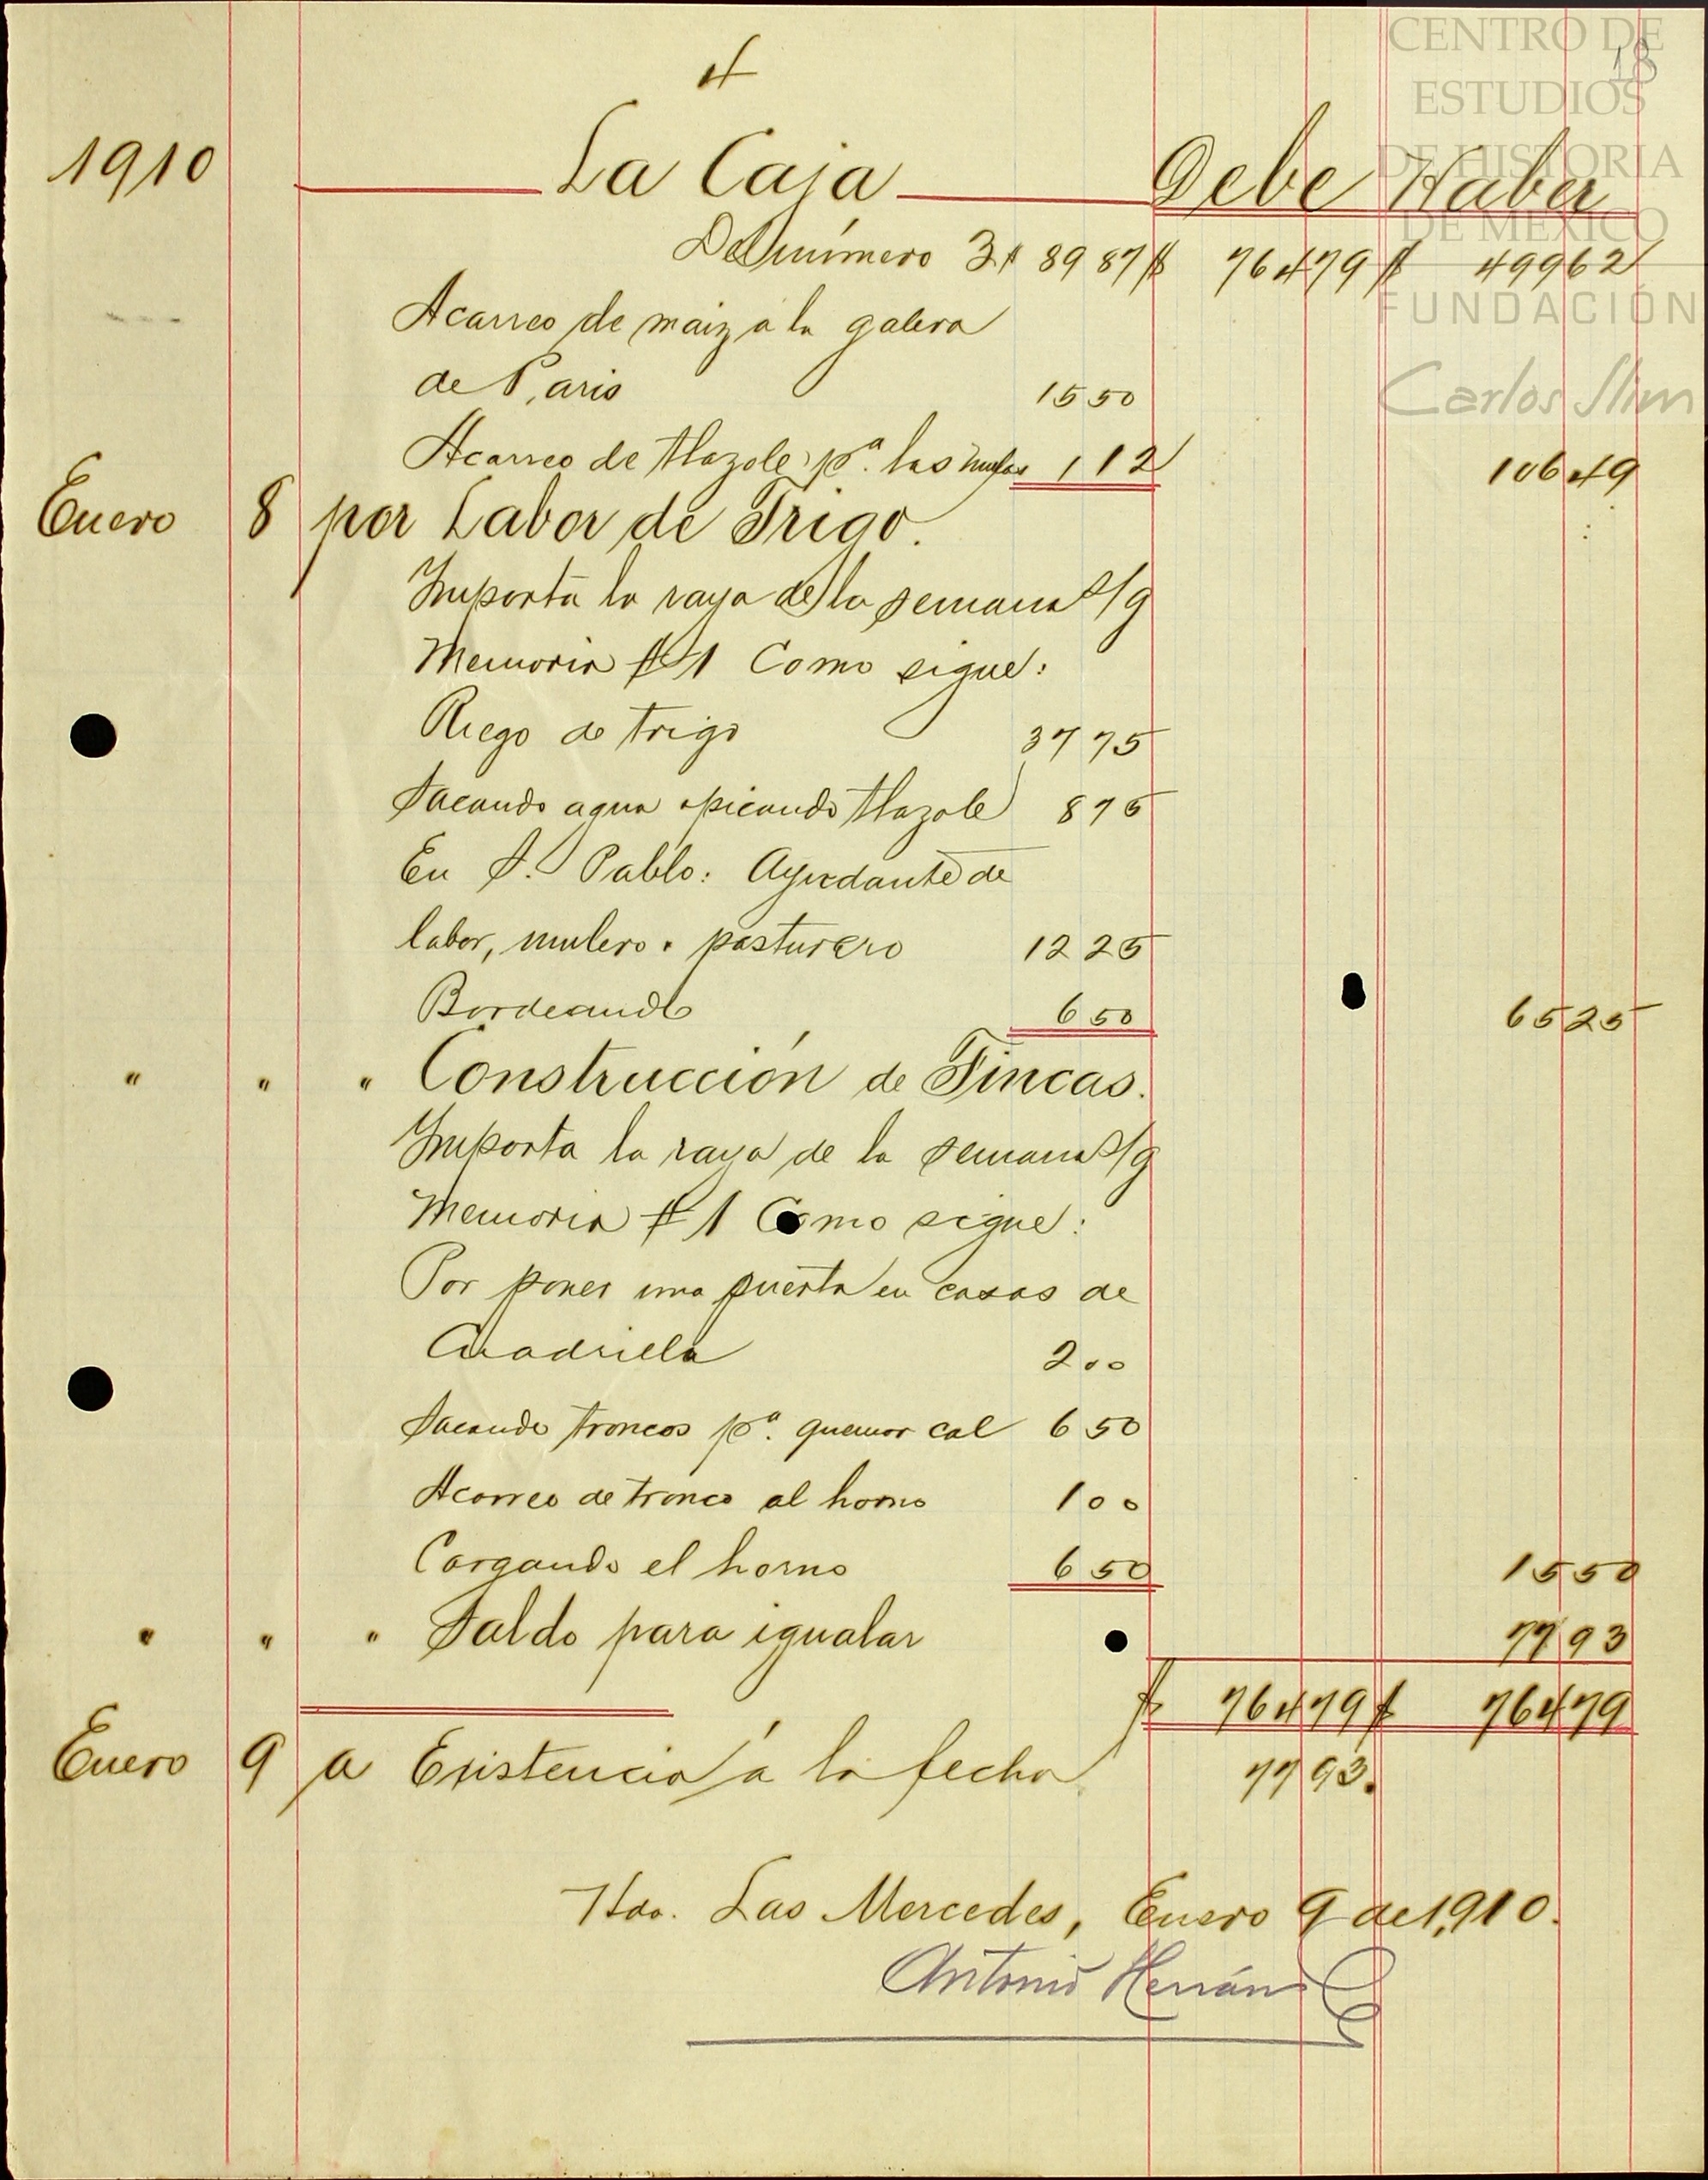 4
CENTRO DE
18
ESTUDIOS
DE HISTORIA
DE MÉXICO
FUNDACIÓN
Carlos Slim
1910 La Caja Debe Haber
Del número 3 $ 89 87 $ 764 79 $ 499 62
Acarreo de maiz a la galera
de Paris 15 50
Acarreo de tlazole pª. las mulas 1 12 106 49
Enero 8 por Labor de Trigo.
Importa la raya de la semana s/g
Memoria # 1 Como sigue:
Riego de trigo 37 75
Sacando agua y picando tlazole 8 75
En S. Pablo: Ayudante de
labor, mulero y pasturero 12 25
Bordeando 6 50 65 25
" " " Construcción de Fincas.
Importa la raya de la semana s/g
Memoria # 1 Como sigue:
Por poner una puerta en casas de
Cuadrilla 2 00
Sacando troncos pª. quemar cal 6 50
Acarreo de tronco al horno 1 00
Cargando el horno 6 50 15 50
" " " Saldo para igualar 77 93
$ 764 79 $ 764 79
Enero 9 a Existencia á la fecha 77 93.
Hda. Las Mercedes, Enero 9 de 1,910.
Antonio Herrán